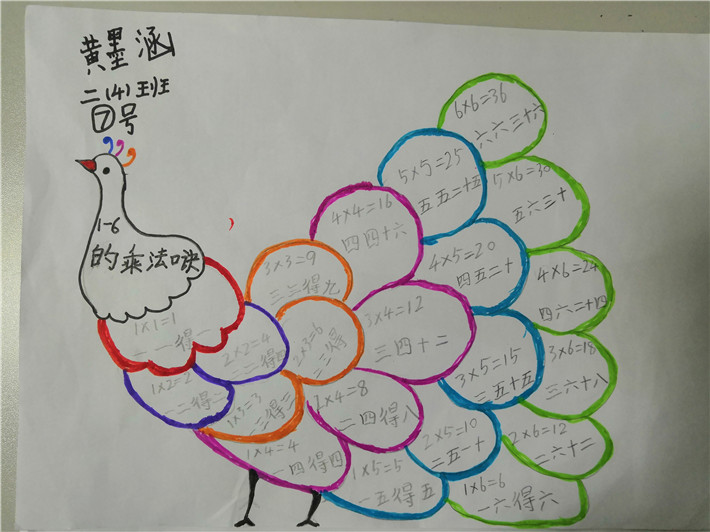 黄墨涵
二(4)班
⑦号
1-6
的乘法口诀
1×1=1
一一得一
1×2=2
一二得二
2×2=4
二二得四
1×3=3
一三得三
2×3=6
二三得
3×3=9
三三得九
1×4=4
一四得四
2×4=8
二四得八
3×4=12
三四十二
4×4=16
四四十六
1×5=5
一五得五
2×5=10
二五一十
3×5=15
三五十五
4×5=20
四五二十
5×5=25
五五二十五
1×6=6
一六得六
2×6=12
二六十二
3×6=18
三六十八
4×6=24
四六二十四
5×6=30
五六三十
6×6=36
六六三十六